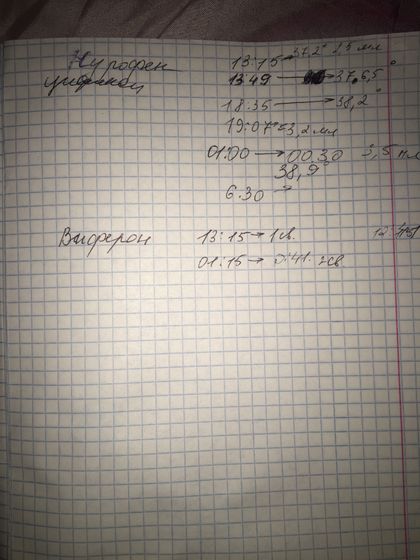 Нурофен 13:15 37,2° 3,5 мл
13:49 → 37,6,5°
18:35 → 38,2°
19:07 = 3,2 мл
01:00 → 00.30 3,5 мл
38,9°
6.30 →
Виферон 13:15 → 1 св.
01:15 → 0:41. св